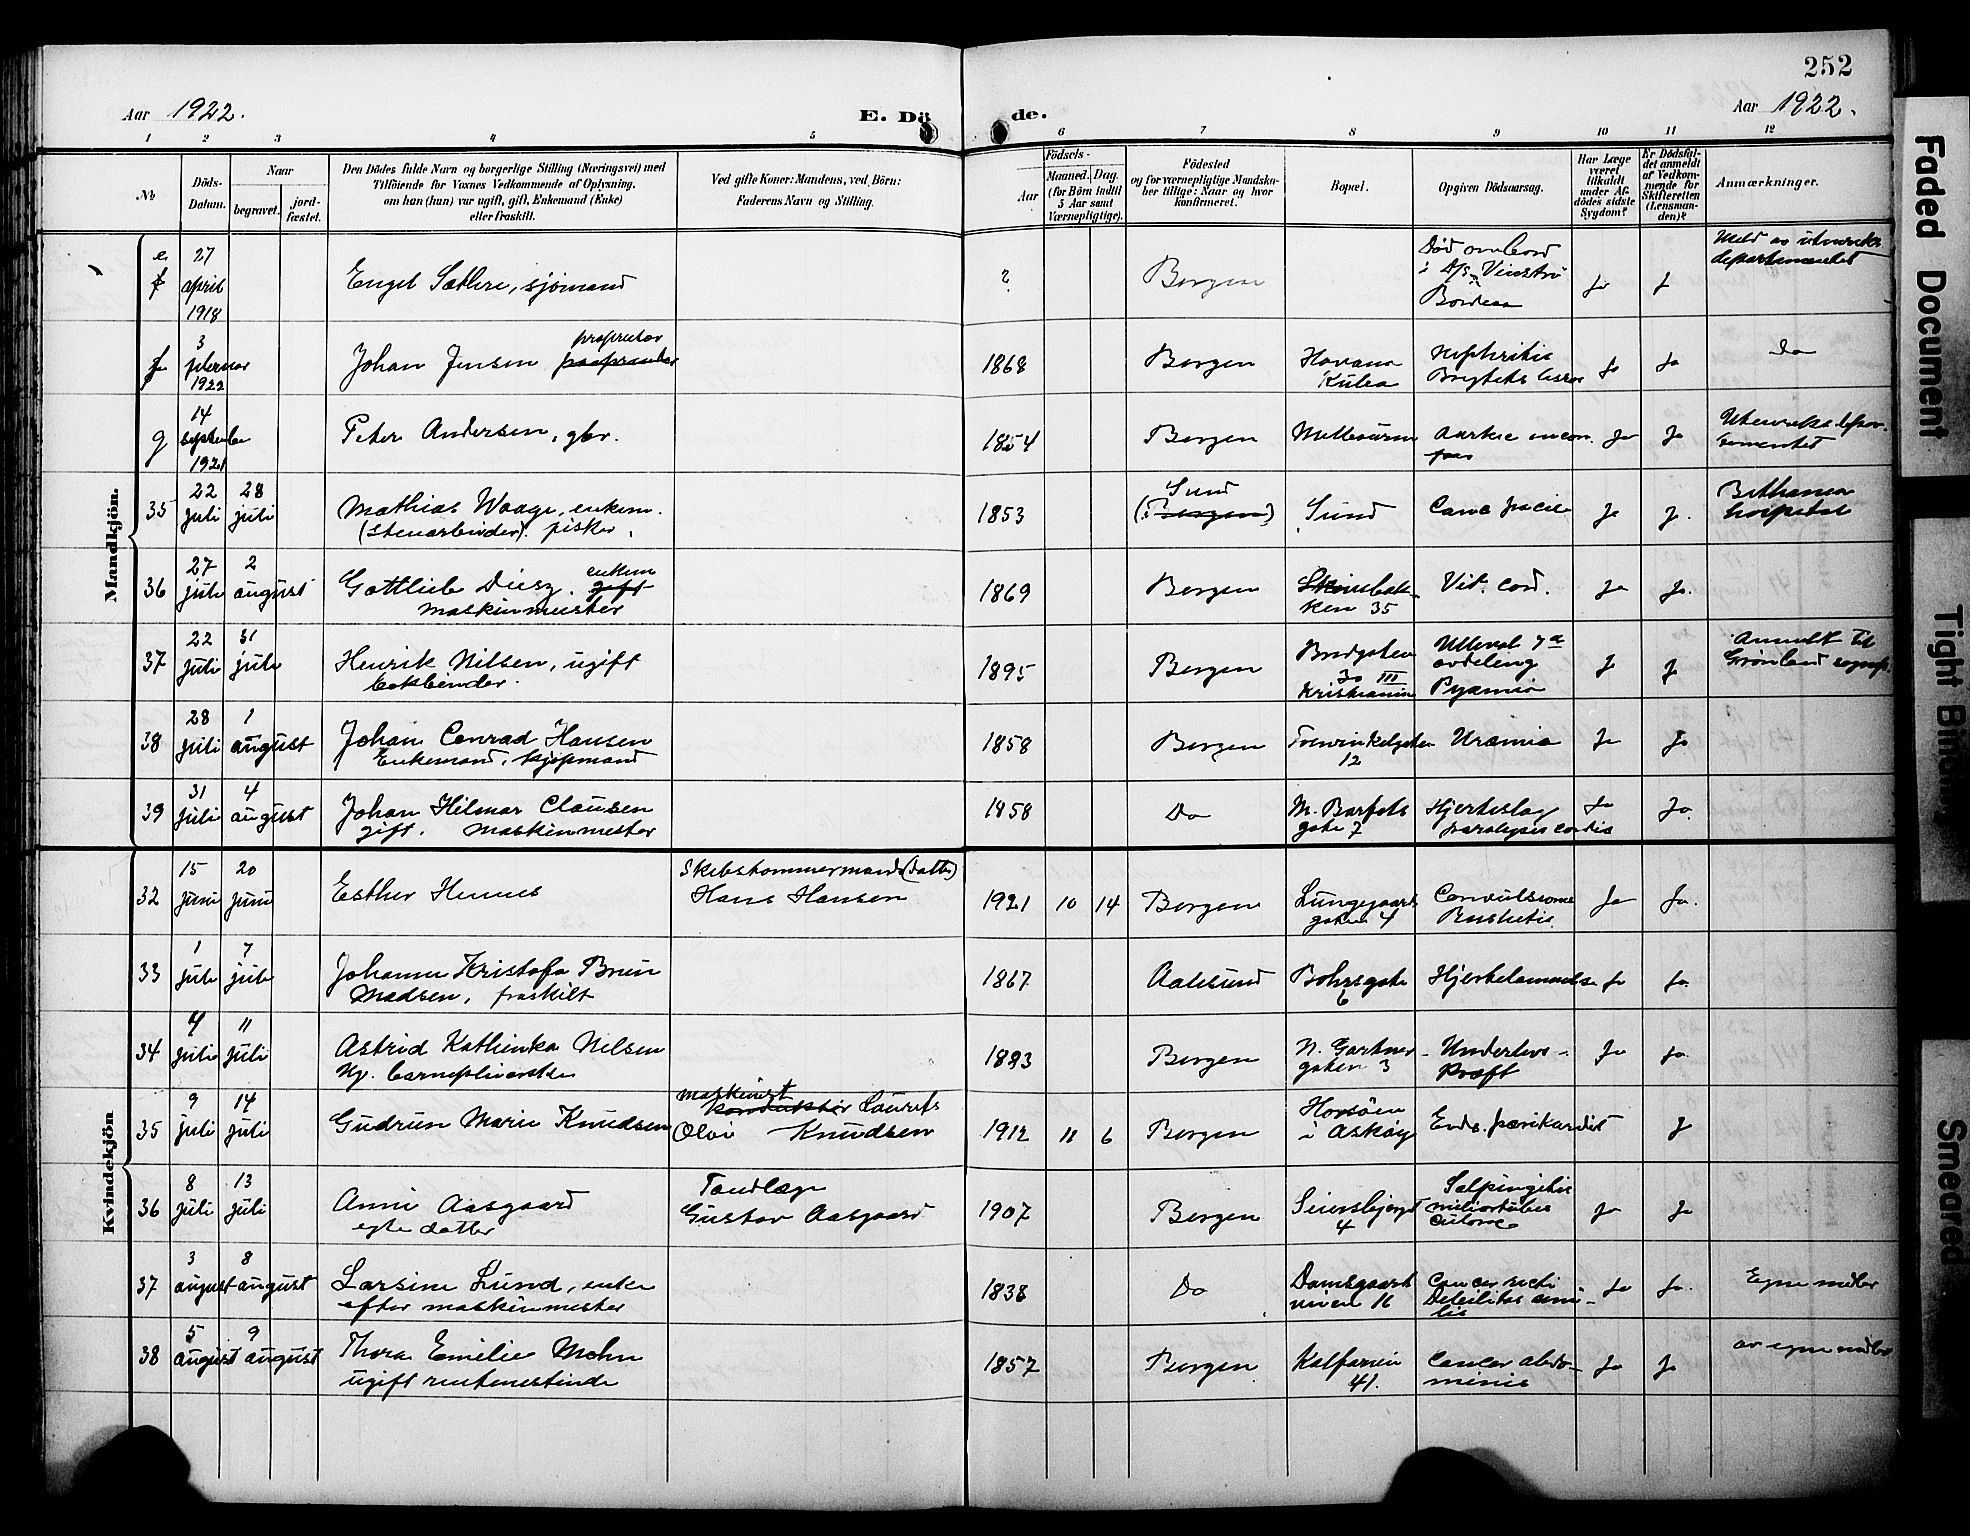 252
Aar 1922.
E. Dö de.
Aar 1922.
1 2 3 4 5 6 7 8 9 10 11 12
No
Döds-Datum.
Naar
begravet.
jord-fæstet.
Den Dödes fulde Navn og borgerlige Stilling (Næringsvei) med
Tilföiende for Voxnes Vedkommende af Oplysning,
om han (hun) var ugift, gift, Enkemand (Enke)
eller fraskilt.
Ved gifte Koner: Mandens, ved Börn:
Faderens Navn og Stilling.
Födsels-
Aar
Maaned. Dag.
(for Börn indtil
5 Aar samt
Værnepligtige).
Födested
og for værnepligtige Mandska-
ber tillige: Naar og hvor
konfirmeret.
Bopæl.
Opgiven Dödsaarsag.
Har Læge
været
tilkaldt
under Af-
dödes sidste
Sygdom?
Er Dödsfal-
det anmeldt
af Vedkom-
mende for
Skifteretten
(Lensman-
den)?
Anmærkninger.
Mandkjön.
e 27 april 1918 Engel Sætere, sjömand ? Bergen Död ombord i D/S Vinstra Ja J
f 3 februar 1922 Johan Jensen proprietær 1868 Bergen Havana Kuba Nephritis Ja Ja Do
g 14 september 1921 Peter Andersen, gbr. 1854 Bergen Melbourne Ja Ja
35 22 juli 28 juli Mathias Waage, enkem. (Stenarbeider). fisker. 1853 Sund (Bergen) Sund Canc. faciei Ja J. Bethania hospital
36 27 juli 2 august Gottlieb Diesz. enkem gift maskinmester 1869 Bergen Skivebakken 35 Vit. cord. Ja Ja.
37 22 juli 31 juli Henrik Nilsen, ugift bokbinder. 1895 Bergen Bredgaten 30 III Kristiania Ulleval 7de avdeling Pyæmia J J Anmeldt til Grönland sognep.
38 28 juli 1 august Johan Conrad Hansen Enkemand, kjöpmand 1858 Bergen 12 Uræmia Ja Ja
39 31 juli 4 august Johan Hilmar Clausen gift. maskinmester 1858 Do M. Barfots gate 7 Hjerteslag paralysis cordis Ja Ja.
Kvindekjön
32 15 juni 20 juni Esther Skibstömmermand (datter) Hans Hansen 1921 10 14 Bergen Lungegaards gaten 4 Convulsiones Rachitis. Ja Ja.
33 1 juli 7 juli Johanne Kristofa Brun Madsen, fraskilt 1867 Aalesund Bohrsgate 6 Hjertelammelse Ja Ja.
34 4 juli 11 juli Astrid Kathinka Nilsen Ug. barnepleierske 1893 Bergen N. Gartnergaten 3 Underlivs-kræft Ja Ja.
35 9 juli 14 juli Gudrun Marie Knudsen maskinist konduktör Laurits Olai Knudsen 1912 11 6 Bergen Horsöen i Asköy Endo. perikardit J
36 8 juli 13 juli Anni Aasgaard egte datter Tandlæge Gustav Aasgaard 1907 Bergen Seiersbjerget 4 Salpingitis Ja Ja
37 3 august 8 august Larsine Lund, enke efter maskinmester 1838 Do Damsgaardsveien 16 Cancer recti Debilitas senilis Ja Ja. Egne midler
38 5 august 9 august Thora Emilie Mohn ugift rentenistinde 1857 Bergen Kalfarvei 41. Cancer abdominis Ja Ja av egne midler
Faded Document
Tight Binding
Smeared